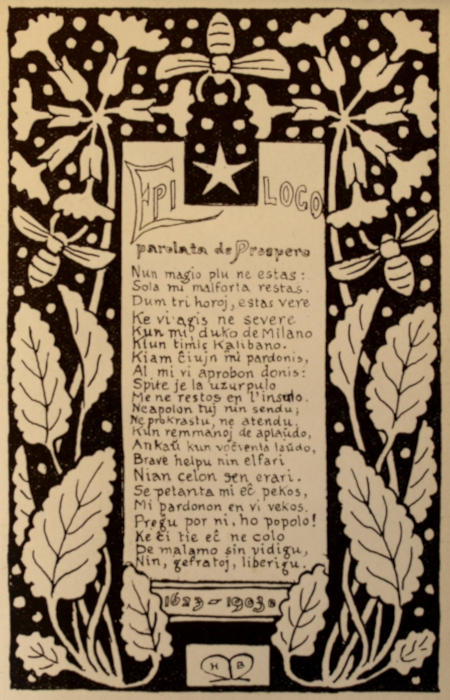 EPI LOGO
parolata de Prospero
Nun magio plu ne estas:
Sola mi malforta restas.
Dum tri horoj, estas vere
Ke vi agis ne severe
Kun mi, duko de Milano
Kiun timiĝ Kalibano.
Kiam ĉiujn mi pardonis,
Al mi vi aprobon donis:
Spite je la uzurpulo
Me ne restos en l'insulo.
Neapolon tuj nun sendu;
Ne prokrastu, ne atendu,
Kun remmanoj de aplaŭdo,
Ankaŭ kun voĉventa laŭdo,
Brave helpu nin elfari
Nian celon sen erari.
Se petanta mi eĉ pekos,
Mi pardonon en vi vekos.
Preĝu por ni, ho popolo!
Ke ĉi tie eĉ ne colo
De malamo sin vidigu,
Nin, gefratoj, liberigu.
1623 – 1903
H B